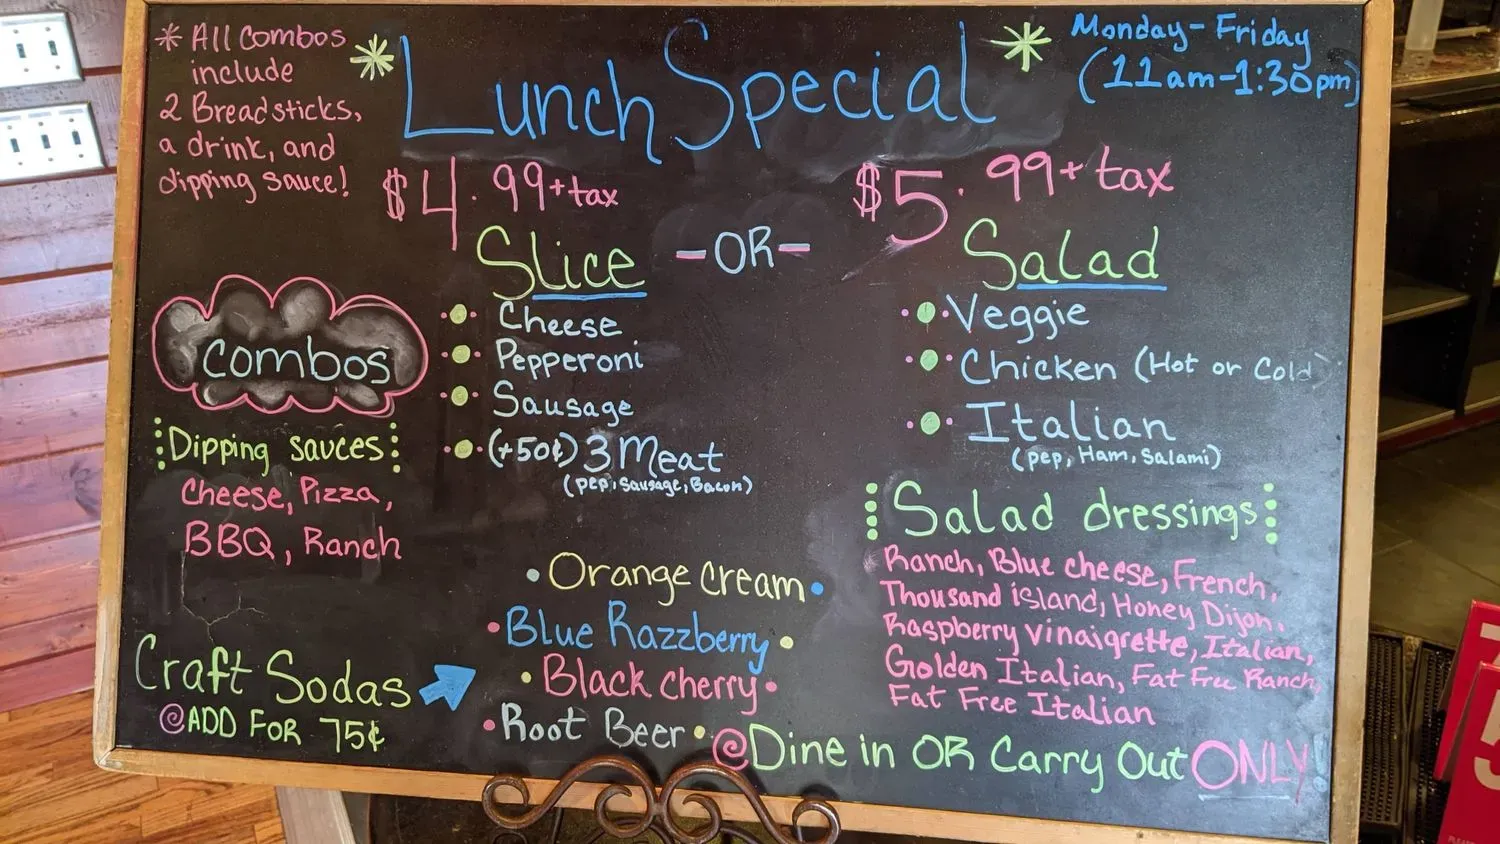 * All combos
include
2 Breadsticks,
a drink, and
dipping sauce!
* Lunch Special *
Monday-Friday
(11am-1:30pm)
$4.99+tax
Slice
-OR-
$5.99+tax
Salad
Combos
• Cheese
• Pepperoni
• Sausage
• (+50¢) 3 Meat
(pep, Sausage, Bacon)
• Veggie
• Chicken (Hot or Cold)
• Italian
(pep, Ham, Salami)
Dipping sauces
Cheese, Pizza,
BBQ, Ranch
Salad dressings
Ranch, Blue cheese, French,
Thousand island, Honey Dijon,
Raspberry vinaigrette, Italian,
Golden Italian, Fat Free Ranch,
Fat Free Italian
Craft Sodas
ADD FOR 75¢
• Orange cream •
• Blue Razzberry •
• Black cherry •
• Root Beer •
Dine in OR Carry Out ONLY